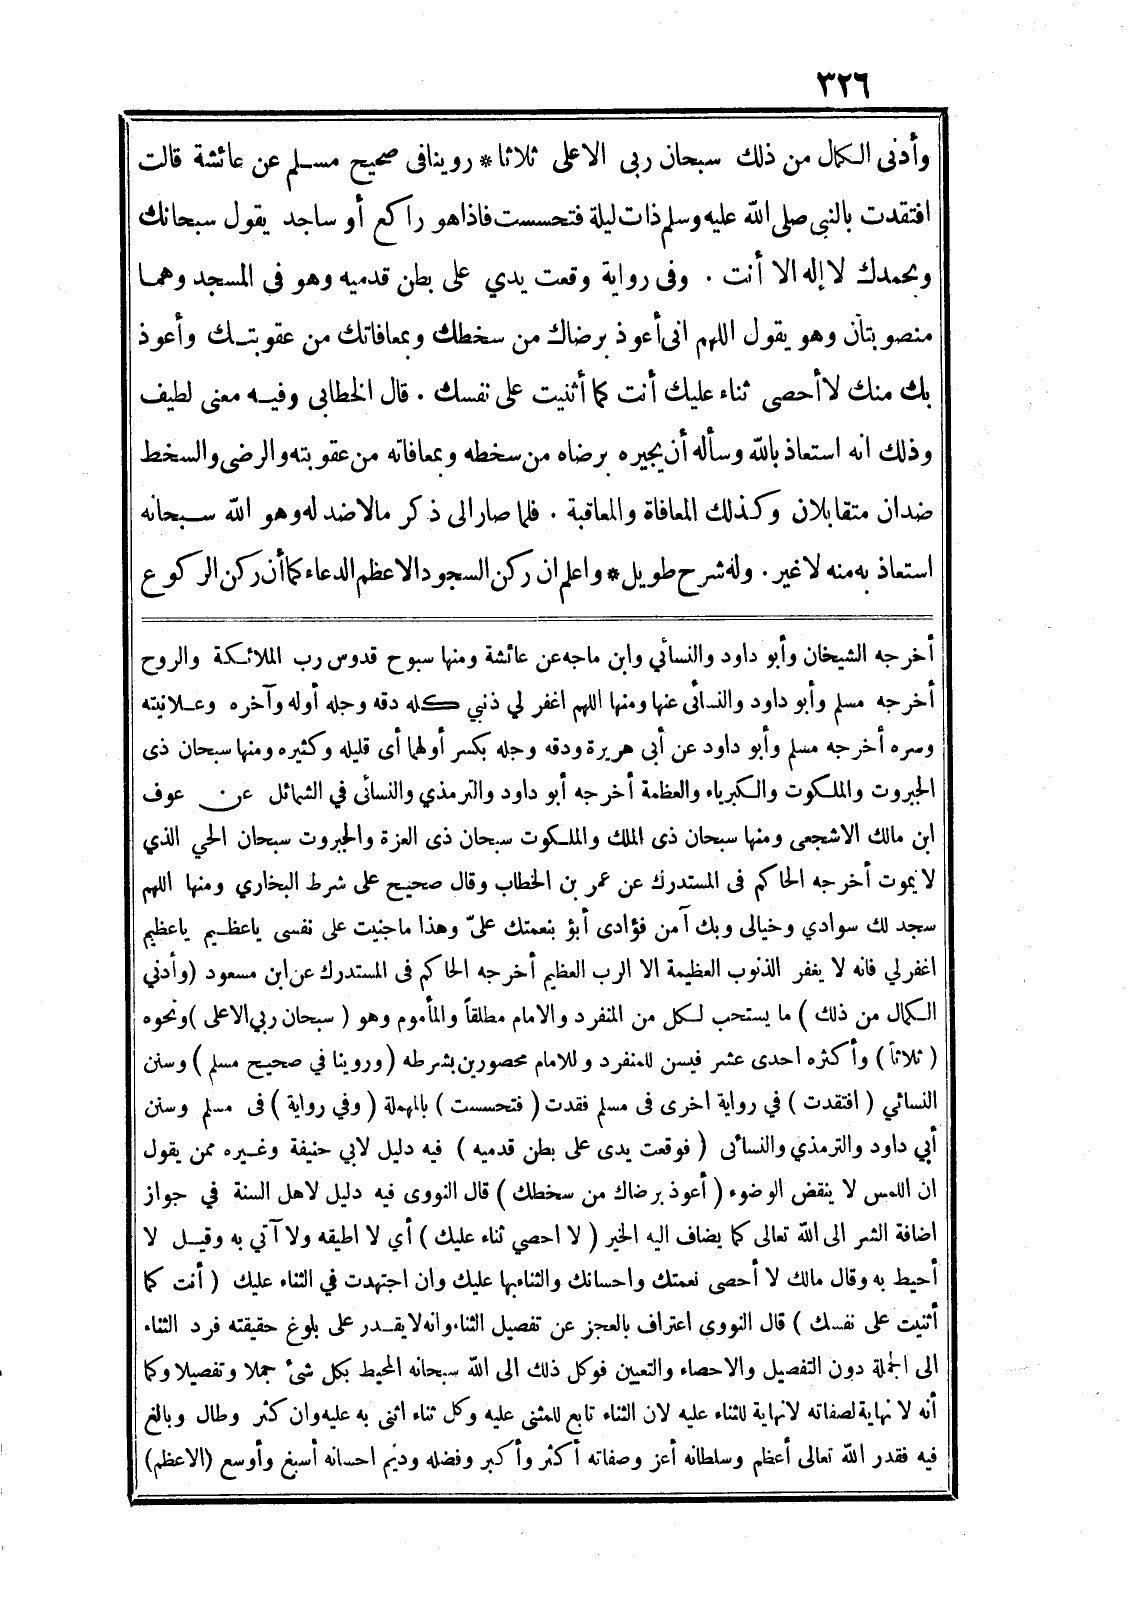 ٣٢٦
وأدنى الكمال من ذلك سبحان ربى الاعلى ثلاثا * روينافى صحيح مسلم عن عائشة قالت
افتقدت بالنبى صلى الله عليه وسلم ذات ليلة فتحسست فاذاهو راكع أو ساجد يقول سبحانك
وبحمدك لاإله الا أنت . وفى رواية وقعت يدي على بطن قدميه وهو فى المسجد وهما
منصوبتان وهو يقول اللهم انى أعوذ برضاك من سخطك وبمعافاتك من عقوبتك وأعوذ
بك منك لاأحصى ثناء عليك أنت كما أثنيت على نفسك . قال الخطابى وفيه معنى لطيف
وذلك انه استعاذ بالله وسأله أن يجيره برضاه من سخطه وبمعافاته من عقوبته والرضى والسخط
ضدان متقابلان وكذلك المعافاة والمعاقبة . فلما صار الى ذكر مالاضد له وهو الله سبحانه
استعاذ به منه لاغير . وله شرح طويل * واعلم ان ركن السجود الاعظم الدعاء كما أن ركن الركوع
أخرجه الشيخان وأبو داود والنسائي وابن ماجه عن عائشة ومنها سبوح قدوس رب الملائكة والروح
أخرجه مسلم وأبو داود والنسائى عنها ومنها اللهم اغفر لي ذنبي كله دقه وجله أوله وآخره وعلانيته
وسره أخرجه مسلم وأبو داود عن أبى هريرة ودقه وجله بكسر أولهما أى قليله وكثيره ومنها سبحان ذى
الجبروت والملكوت والكبرياء والعظمة أخرجه أبو داود والترمذي والنسائى في الشمائل عن عوف
ابن مالك الاشجعى ومنها سبحان ذى الملك والملكوت سبحان ذى العزة والجبروت سبحان الحي الذي
لا يموت أخرجه الحاكم فى المستدرك عن عمر بن الخطاب وقال صحيح على شرط البخاري ومنها اللهم
سجد لك سوادي وخيالى وبك آمن فؤادى أبؤ بنعمتك علىّ وهذا ماجنيت على نفسى ياعظيم ياعظيم
اغفرلي فانه لا يغفر الذنوب العظيمة الا الرب العظيم أخرجه الحاكم فى المستدرك عن ابن مسعود (وأدني
الكمال من ذلك ) ما يستحب لكل من المنفرد والامام مطلقاً والمأموم وهو ( سبحان ربي الاعلى ) ونحوه
( ثلاثاً ) وأكثره احدى عشر فيسن للمنفرد وللامام محصورين بشرطه ( وروينا في صحيح مسلم ) وسنن
النسائي ( افتقدت ) في رواية اخرى فى مسلم فقدت ( فتحسست ) بالمهملة ( وفي رواية ) فى مسلم وسنن
أبي داود والترمذي والنسائى ( فوقعت يدى على بطن قدميه ) فيه دليل لابي حنيفة وغيره ممن يقول
ان اللمس لا ينقض الوضوء ( أعوذ برضاك من سخطك ) قال النووى فيه دليل لاهل السنة في جواز
اضافة الشر الى الله تعالى كما يضاف اليه الخير ( لا احصي ثناء عليك ) أي لا اطيقه ولا آتي به وقيل لا
أحيط به وقال مالك لا أحصى نعمتك واحسانك والثناء بها عليك وان اجتهدت في الثناء عليك ( أنت كما
أثنيت على نفسك ) قال النووى اعتراف بالعجز عن تفصيل الثناء وانه لايقدر على بلوغ حقيقته فرد الثناء
الى الجملة دون التفصيل والاحصاء والتعيين فوكل ذلك الى الله سبحانه المحيط بكل شئ جملا وتفصيلا وكما
أنه لا نهاية لصفاته لانهاية للثناء عليه لان الثناء تابع للمثنى عليه وكل ثناء اثنى به عليه وان كثر وطال وبالغ
فيه فقدر الله تعالى أعظم وسلطانه أعز وصفاته أكثر وأكبر وفضله وديم احسانه أسبغ وأوسع (الاعظم)